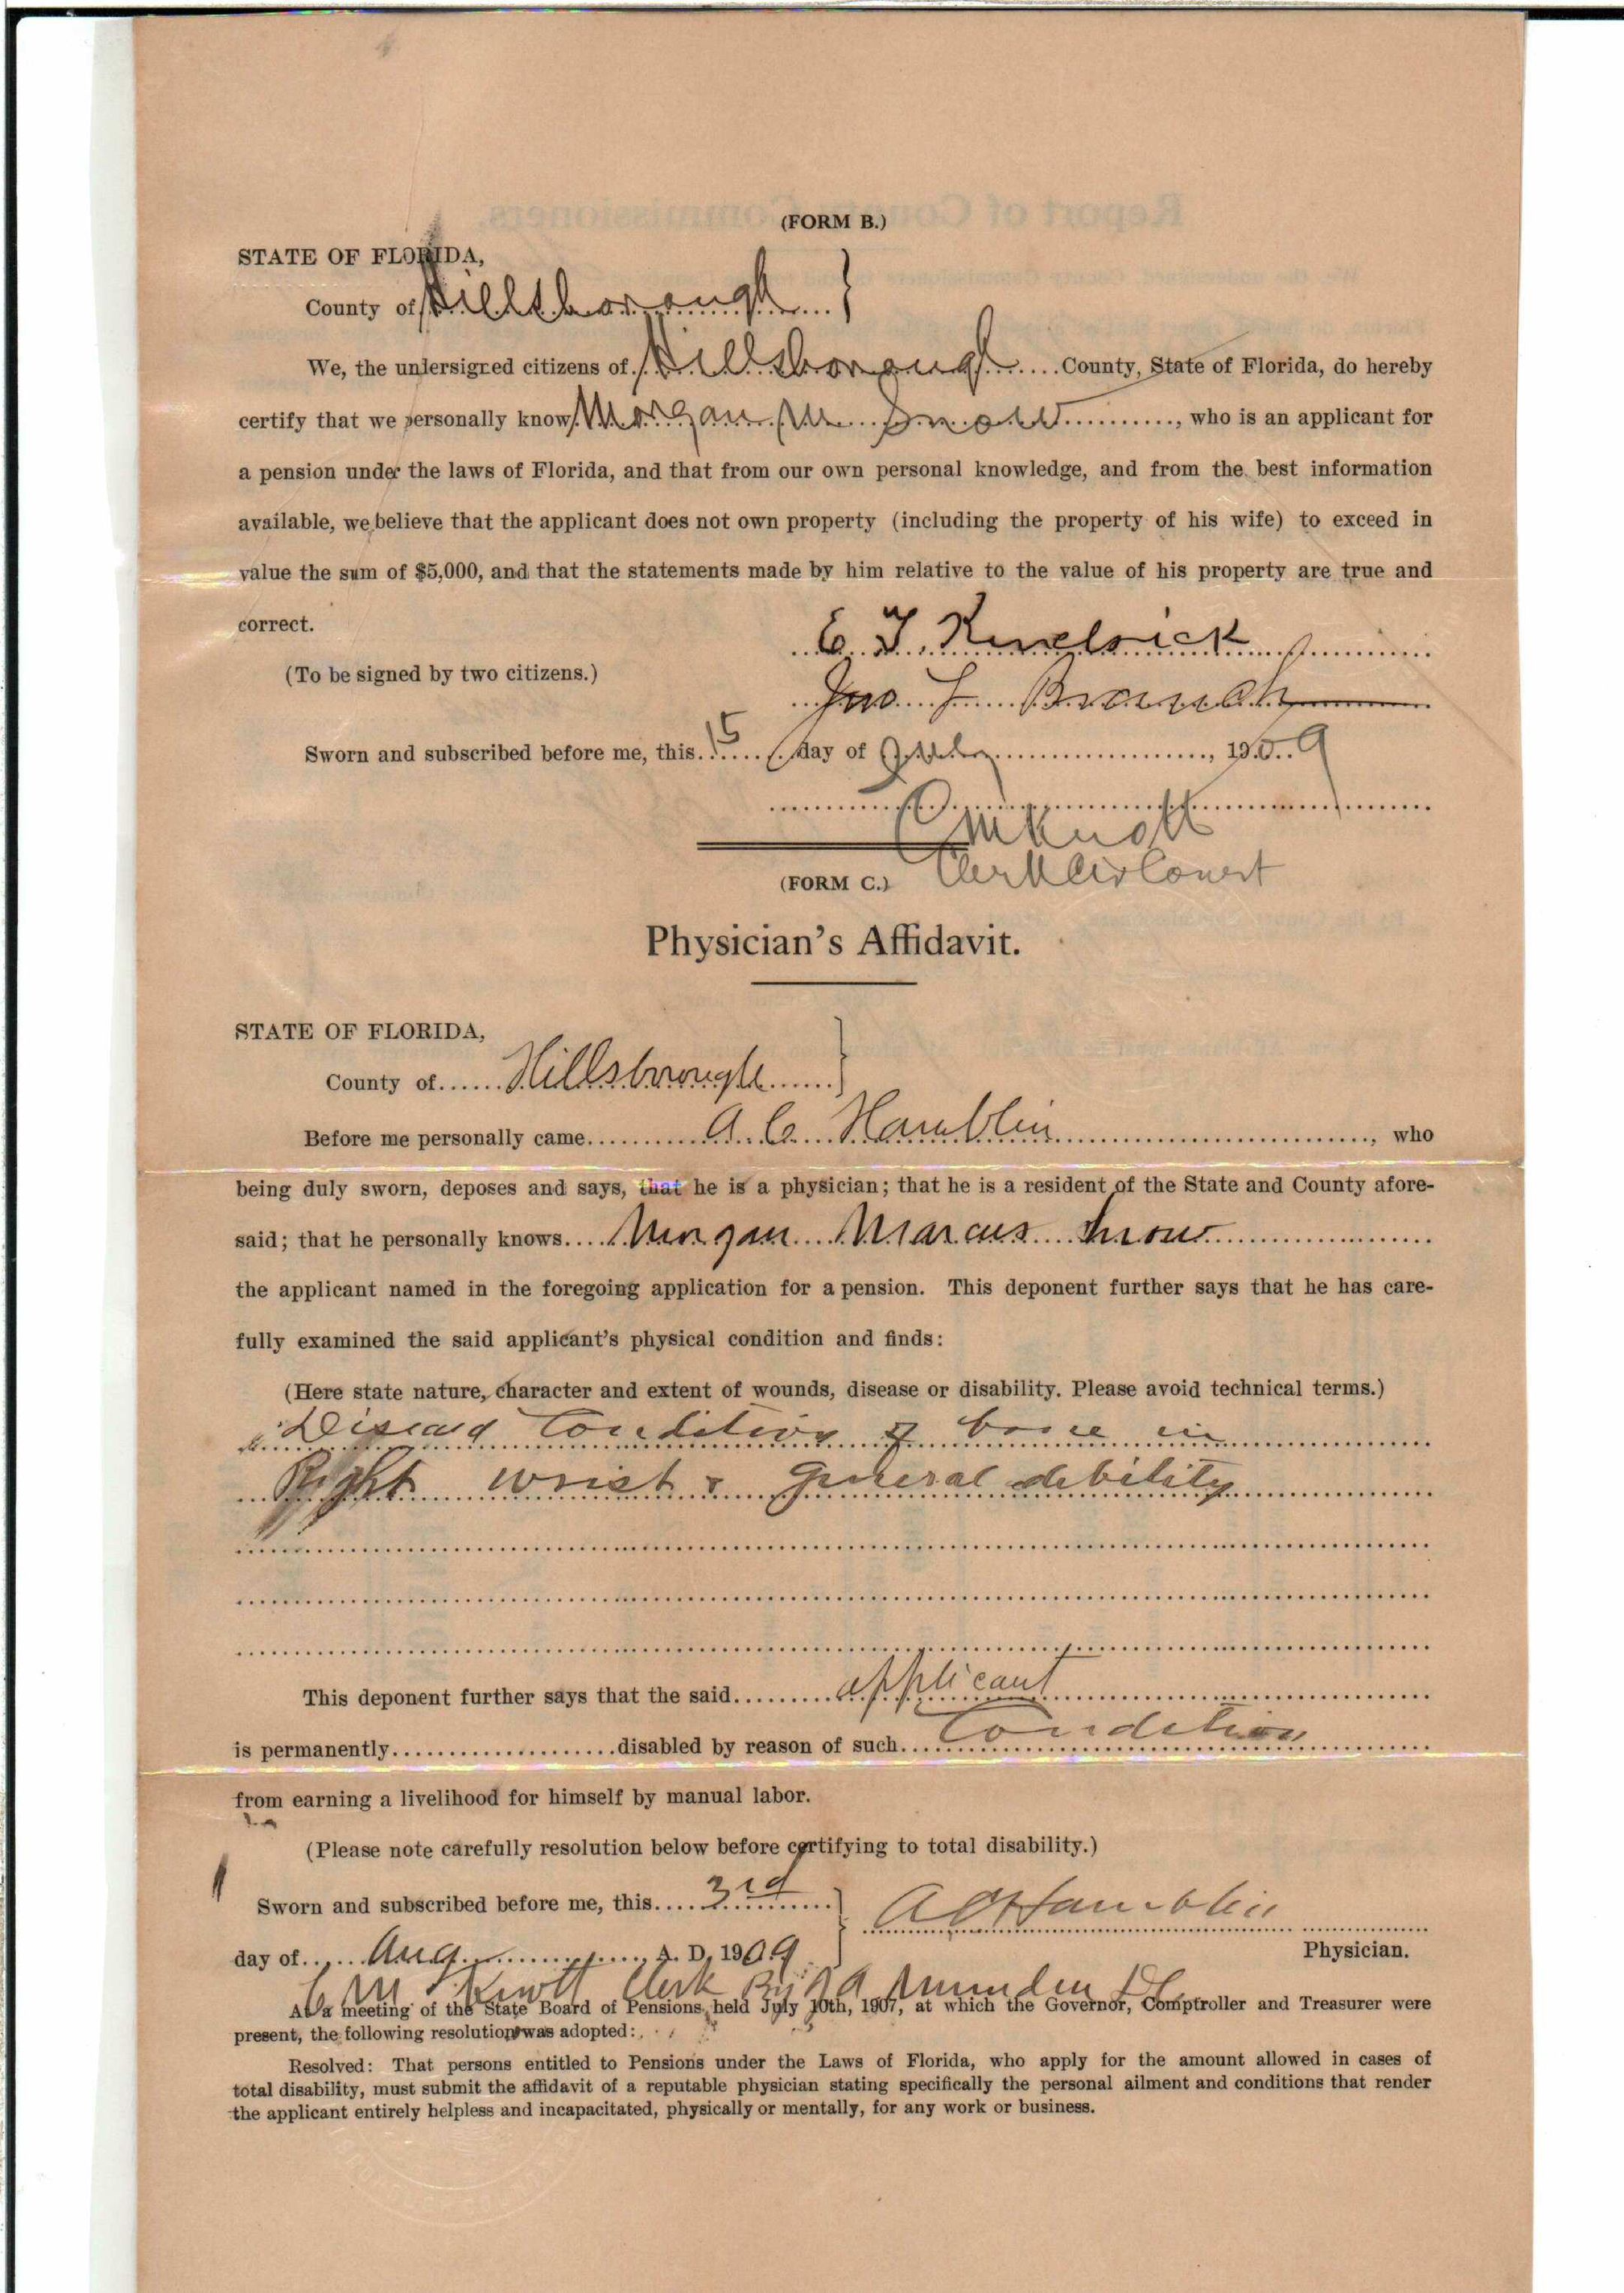 (FORM B.)
STATE OF FLORIDA,
County of Hillsborough }
We, the undersigned citizens of Hillsborough County, State of Florida, do hereby
certify that we personally know Morgan M Snow, who is an applicant for
a pension under the laws of Florida, and that from our own personal knowledge, and from the best information
available, we believe that the applicant does not own property (including the property of his wife) to exceed in
value the sum of $5,000, and that the statements made by him relative to the value of his property are true and
correct.
E. T.
(To be signed by two citizens.)
Jno. T. Branch
Sworn and subscribed before me, this 15 day of July, 1909
C M Knott
(FORM C.) Clerk Cir Court
Physician's Affidavit.
STATE OF FLORIDA,
County of Hillsborough }
Before me personally came A. C. Hamblin, who
being duly sworn, deposes and says, that he is a physician; that he is a resident of the State and County afore-
said; that he personally knows Morgan Marcus Snow
the applicant named in the foregoing application for a pension. This deponent further says that he has care-
fully examined the said applicant's physical condition and finds:
(Here state nature, character and extent of wounds, disease or disability. Please avoid technical terms.)
Condition of bone in
Right wrist & general debility
This deponent further says that the said applicant
is permanently disabled by reason of such Condition
from earning a livelihood for himself by manual labor.
(Please note carefully resolution below before certifying to total disability.)
Sworn and subscribed before me, this 3rd } A C Hamblin
day of Aug A. D. 1909 Physician.
C M Knott Clerk By DC
At a meeting of the State Board of Pensions, held July 10th, 1907, at which the Governor, Comptroller and Treasurer were
present, the following resolution was adopted:
Resolved: That persons entitled to Pensions under the Laws of Florida, who apply for the amount allowed in cases of
total disability, must submit the affidavit of a reputable physician stating specifically the personal ailment and conditions that render
the applicant entirely helpless and incapacitated, physically or mentally, for any work or business.